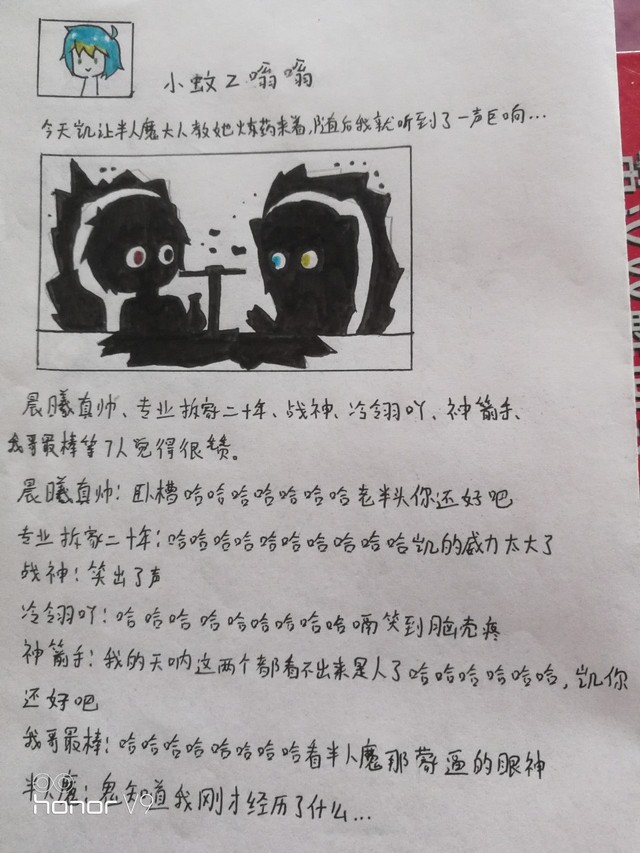 小蚊乙嗡嗡
今天凯让半人魔大人教她炼药来着,随后我就听到了一声巨响...
晨曦真帅、专业拆家二十年、战神、冷翎吖、神箭手、
我哥最棒等7人觉得很赞。
晨曦真帅:卧槽哈哈哈哈哈哈哈老半头你还好吧
专业拆家二十年:哈哈哈哈哈哈哈哈哈哈哈凯的威力太大了
战神:笑出了声
冷翎吖:哈哈哈哈哈哈哈哈哈嗝笑到脑壳疼
神箭手:我的天呐这两个都看不出来是人了哈哈哈哈哈哈哈,凯你
还好吧
我哥最棒:哈哈哈哈哈哈哈哈看半人魔那蒙逼的眼神
半人魔:鬼知道我刚才经历了什么...
honor V9